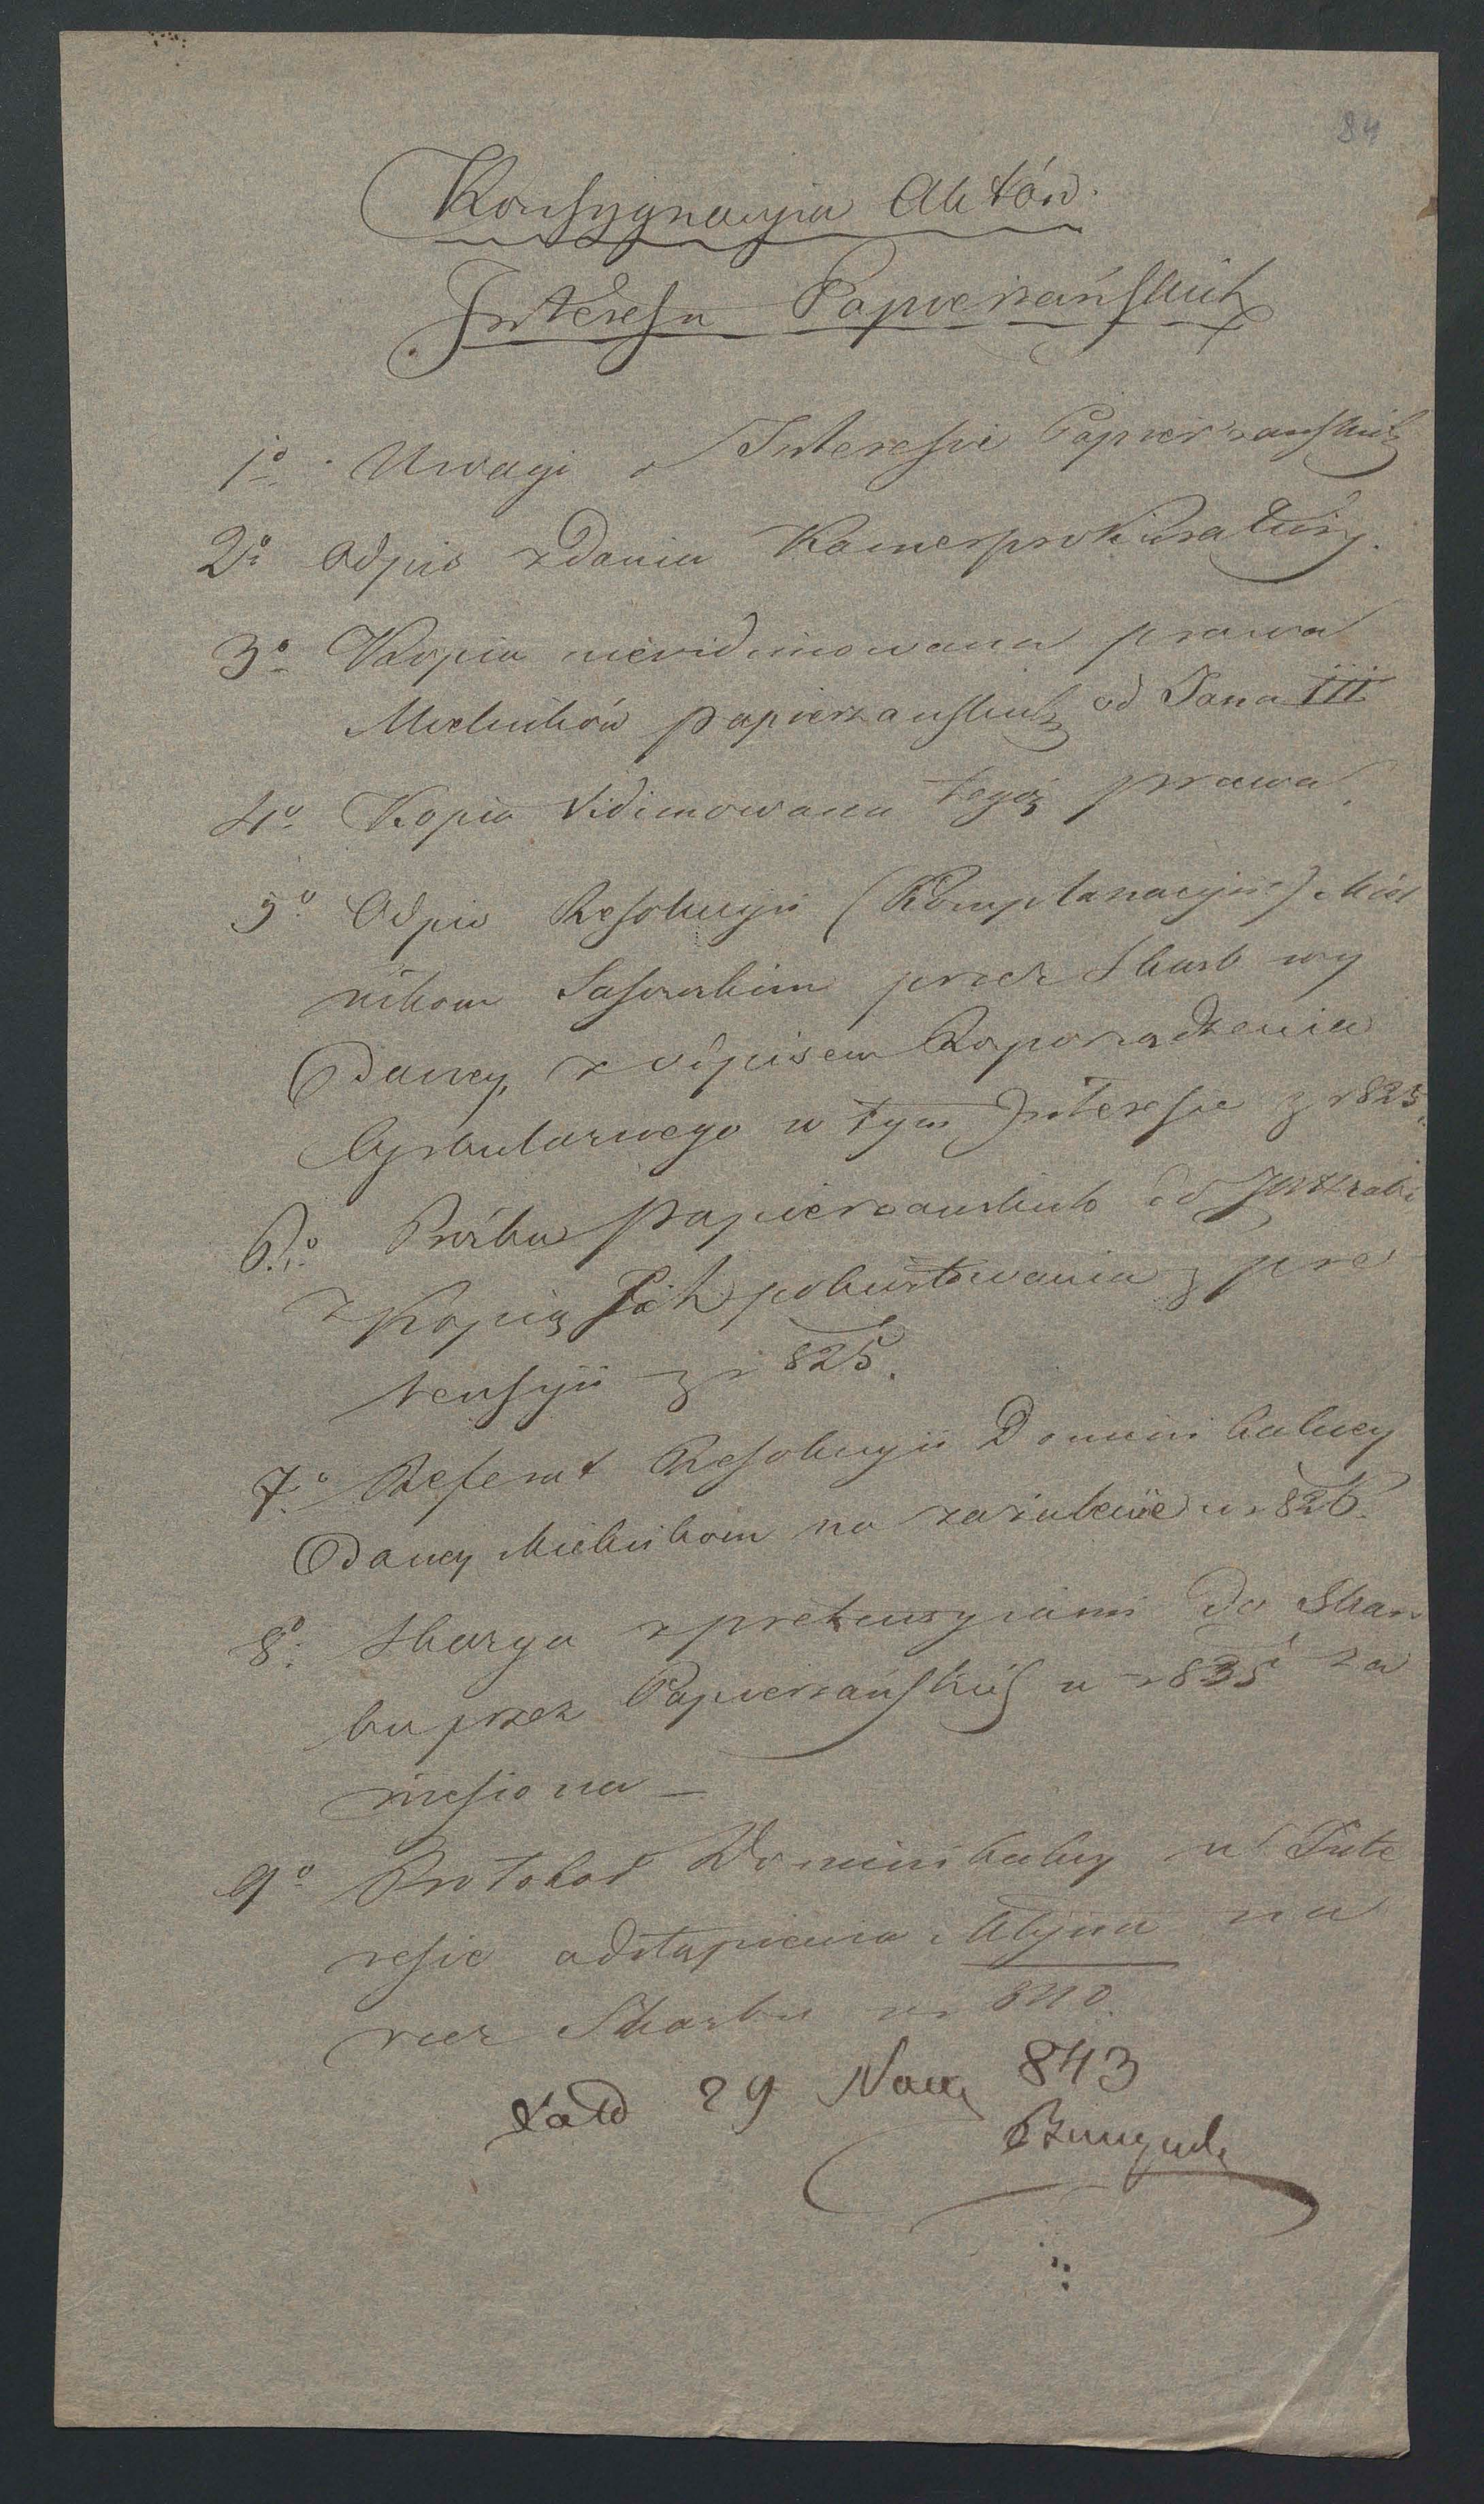 84
Konsygnacyia Aktów.
Interesu Papierzańskich
1º Uwagi o Interesie Papierzanskich
2º Odpis zdania Kamerprokuratury.
3º Kopia nievidimowana prawa
Mielników papierzanskich od Jana III
4º Kopia vidimowana tegoż prawa.
5º Odpis Resolucyii (Komplanacyii) Miel
nikom Sasowskim przez Skarb wy
daney, z odpisem Rozporządzenia
Cyrkularnego w tym Interesie z r 825.
6.º Prózba papierzanskich od
z Kopią Ich pokwitowania z pre
tensyii z r 825.
7.º Referat Resolucyii Dominikalney
daney Mielnikom na zażalenie w r 826.
8º Skarga z pretensyiami do Skar
bu przez Papierzańskich w r 835 za
niesiona —
9º Protokoł Dominikalny w Inte
resie odstąpienia Młyna na
rzecz Skarbu w r 840.
29 843